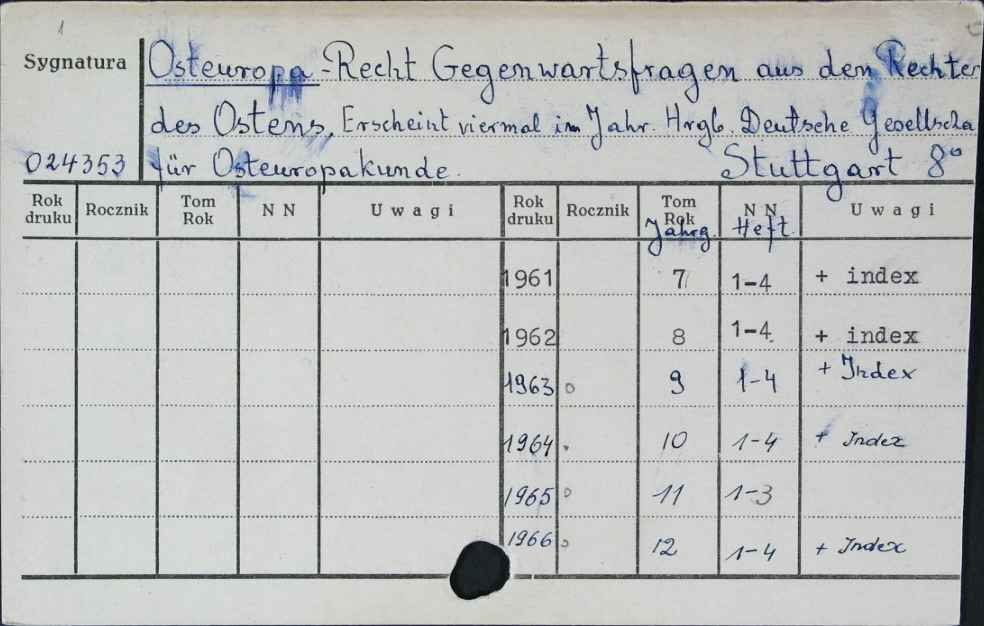 1
Sygnatura
Osteuropa-Recht Gegenwartsfragen aus den Rechten
des Ostens, Erscheint viermal im Jahr. Hrgb. Deutsche Gesellscha
024353 für Osteuropakunde. Stuttgart 8°
Rok druku Rocznik Tom Rok N N U w a g i Rok druku Rocznik Tom Rok N N U w a g i
Jahrg. Heft
1961 7 1-4 + index
1962 8 1-4. + index
1963 o 9 1-4 + Index
1964 . 10 1-4 + Index
1965 o 11 1-3
1966 o 12 1-4 + Index